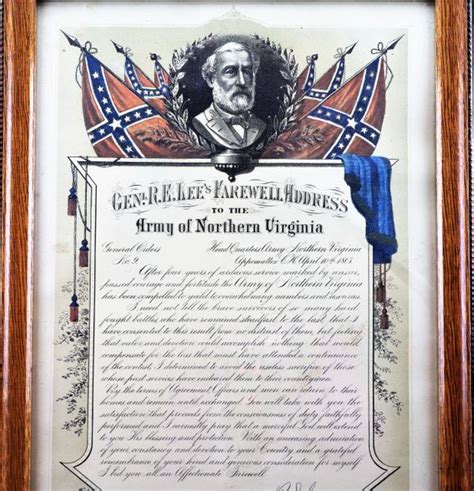 GEN. R. E. LEE'S FAREWELL ADDRESS
TO THE
Army of Northern Virginia
General Orders Head Quarters Army Northern Virginia
No. 9. Appomattox C.H. April 10th 1865
After four years of arduous service marked by unsur-
passed courage and fortitude the Army of Northern Virginia
has been compelled to yield to overwhelming numbers and resources
I need not tell the brave survivors of so many hard
fought battles who have remained steadfast to the last that I
have consented to this result from no distrust of them, but feeling
that valor and devotion could accomplish nothing that would
compensate for the loss that must have attended a continuance
of the contest, I determined to avoid the useless sacrifice of those
whose past services have endeared them to their countrymen.
By the terms of Agreement Officers and men can return to their
homes and remain until exchanged. You will take with you the
satisfaction that proceeds from the consciousness of duty faithfully
performed and I earnestly pray that a merciful God will extend
to you His blessing and protection. With an unceasing admiration
of your constancy and devotion to your Country and a grateful
remembrance of your kind and generous consideration for myself
I bid you all an Affectionate Farewell.